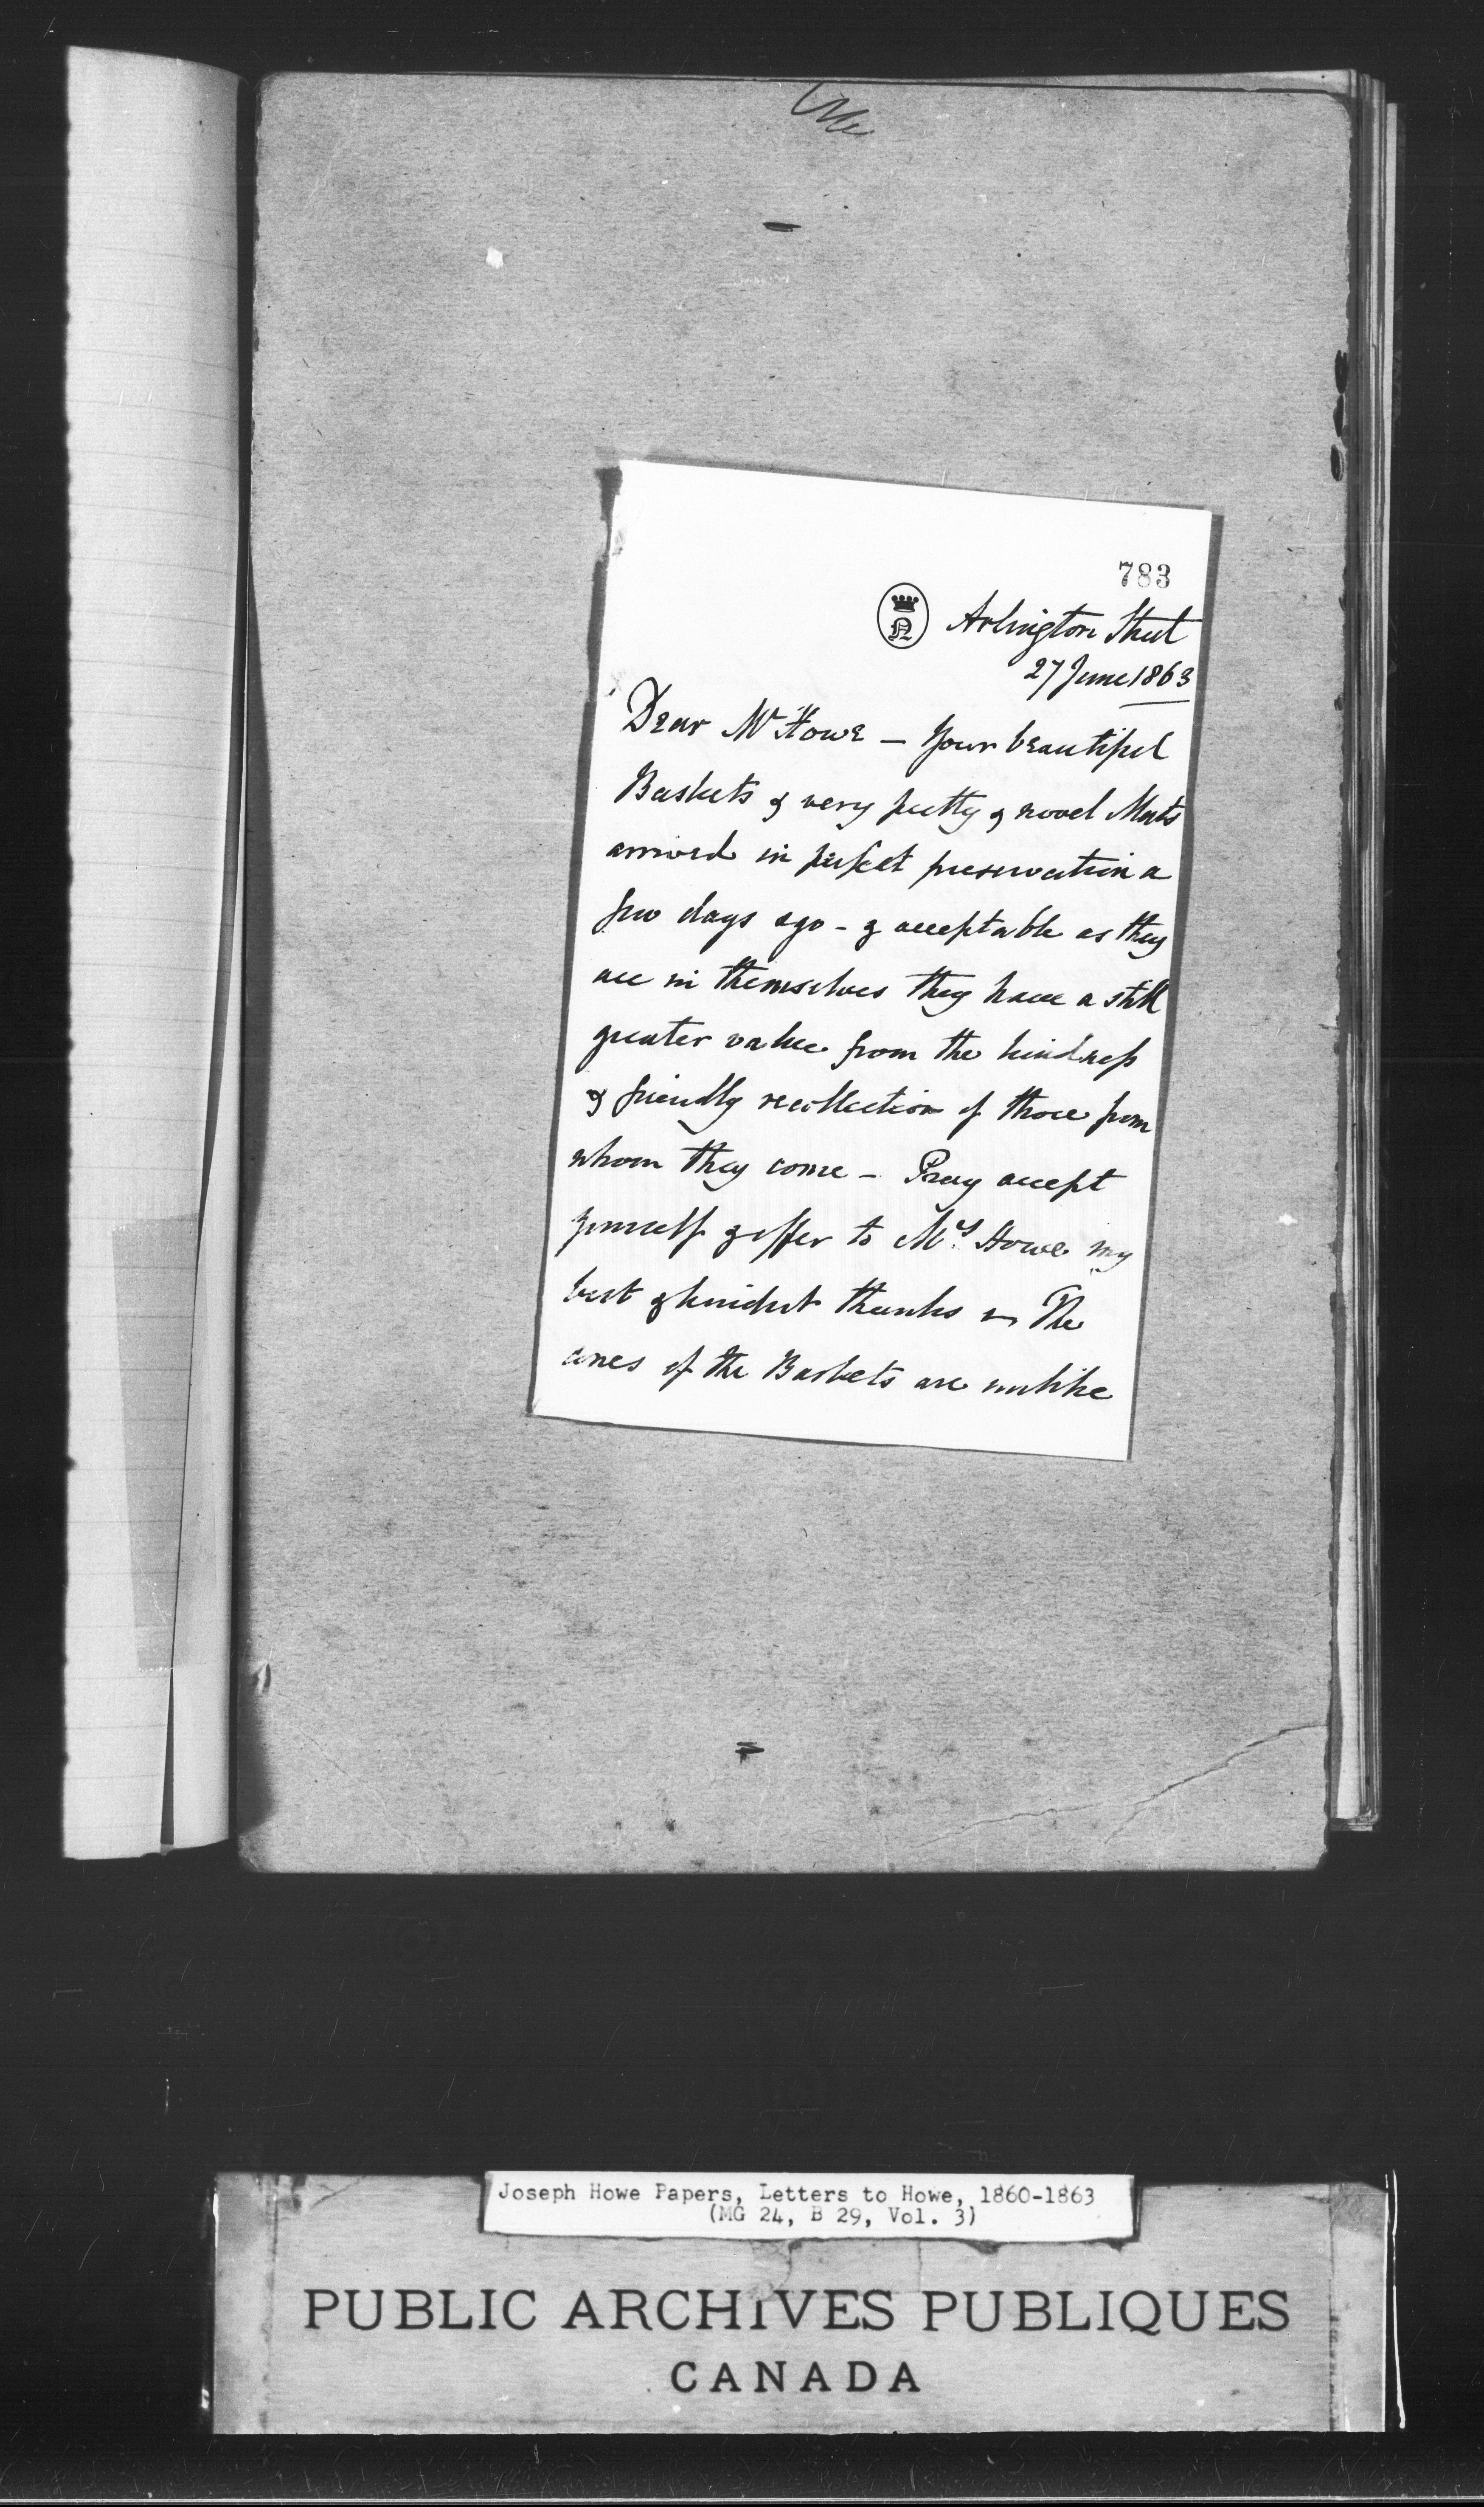 783
Arlington Street
27 June 1863
Dear Mr Howe – Your beautiful
Baskets & very pretty & novel Mats
arrived in perfect preservation a
few days ago – & acceptable as they
are in themselves they have a still
greater value from the kindness
& friendly recollection of those from
whom they come – Pray accept
yourself & offer to Mrs. Howe my
best & kindest thanks – The
cones of the Baskets are unlike
Joseph Howe Papers, Letters to Howe, 1860-1863
(MG 24, B 29, Vol. 3)
PUBLIC ARCHIVES PUBLIQUES
CANADA